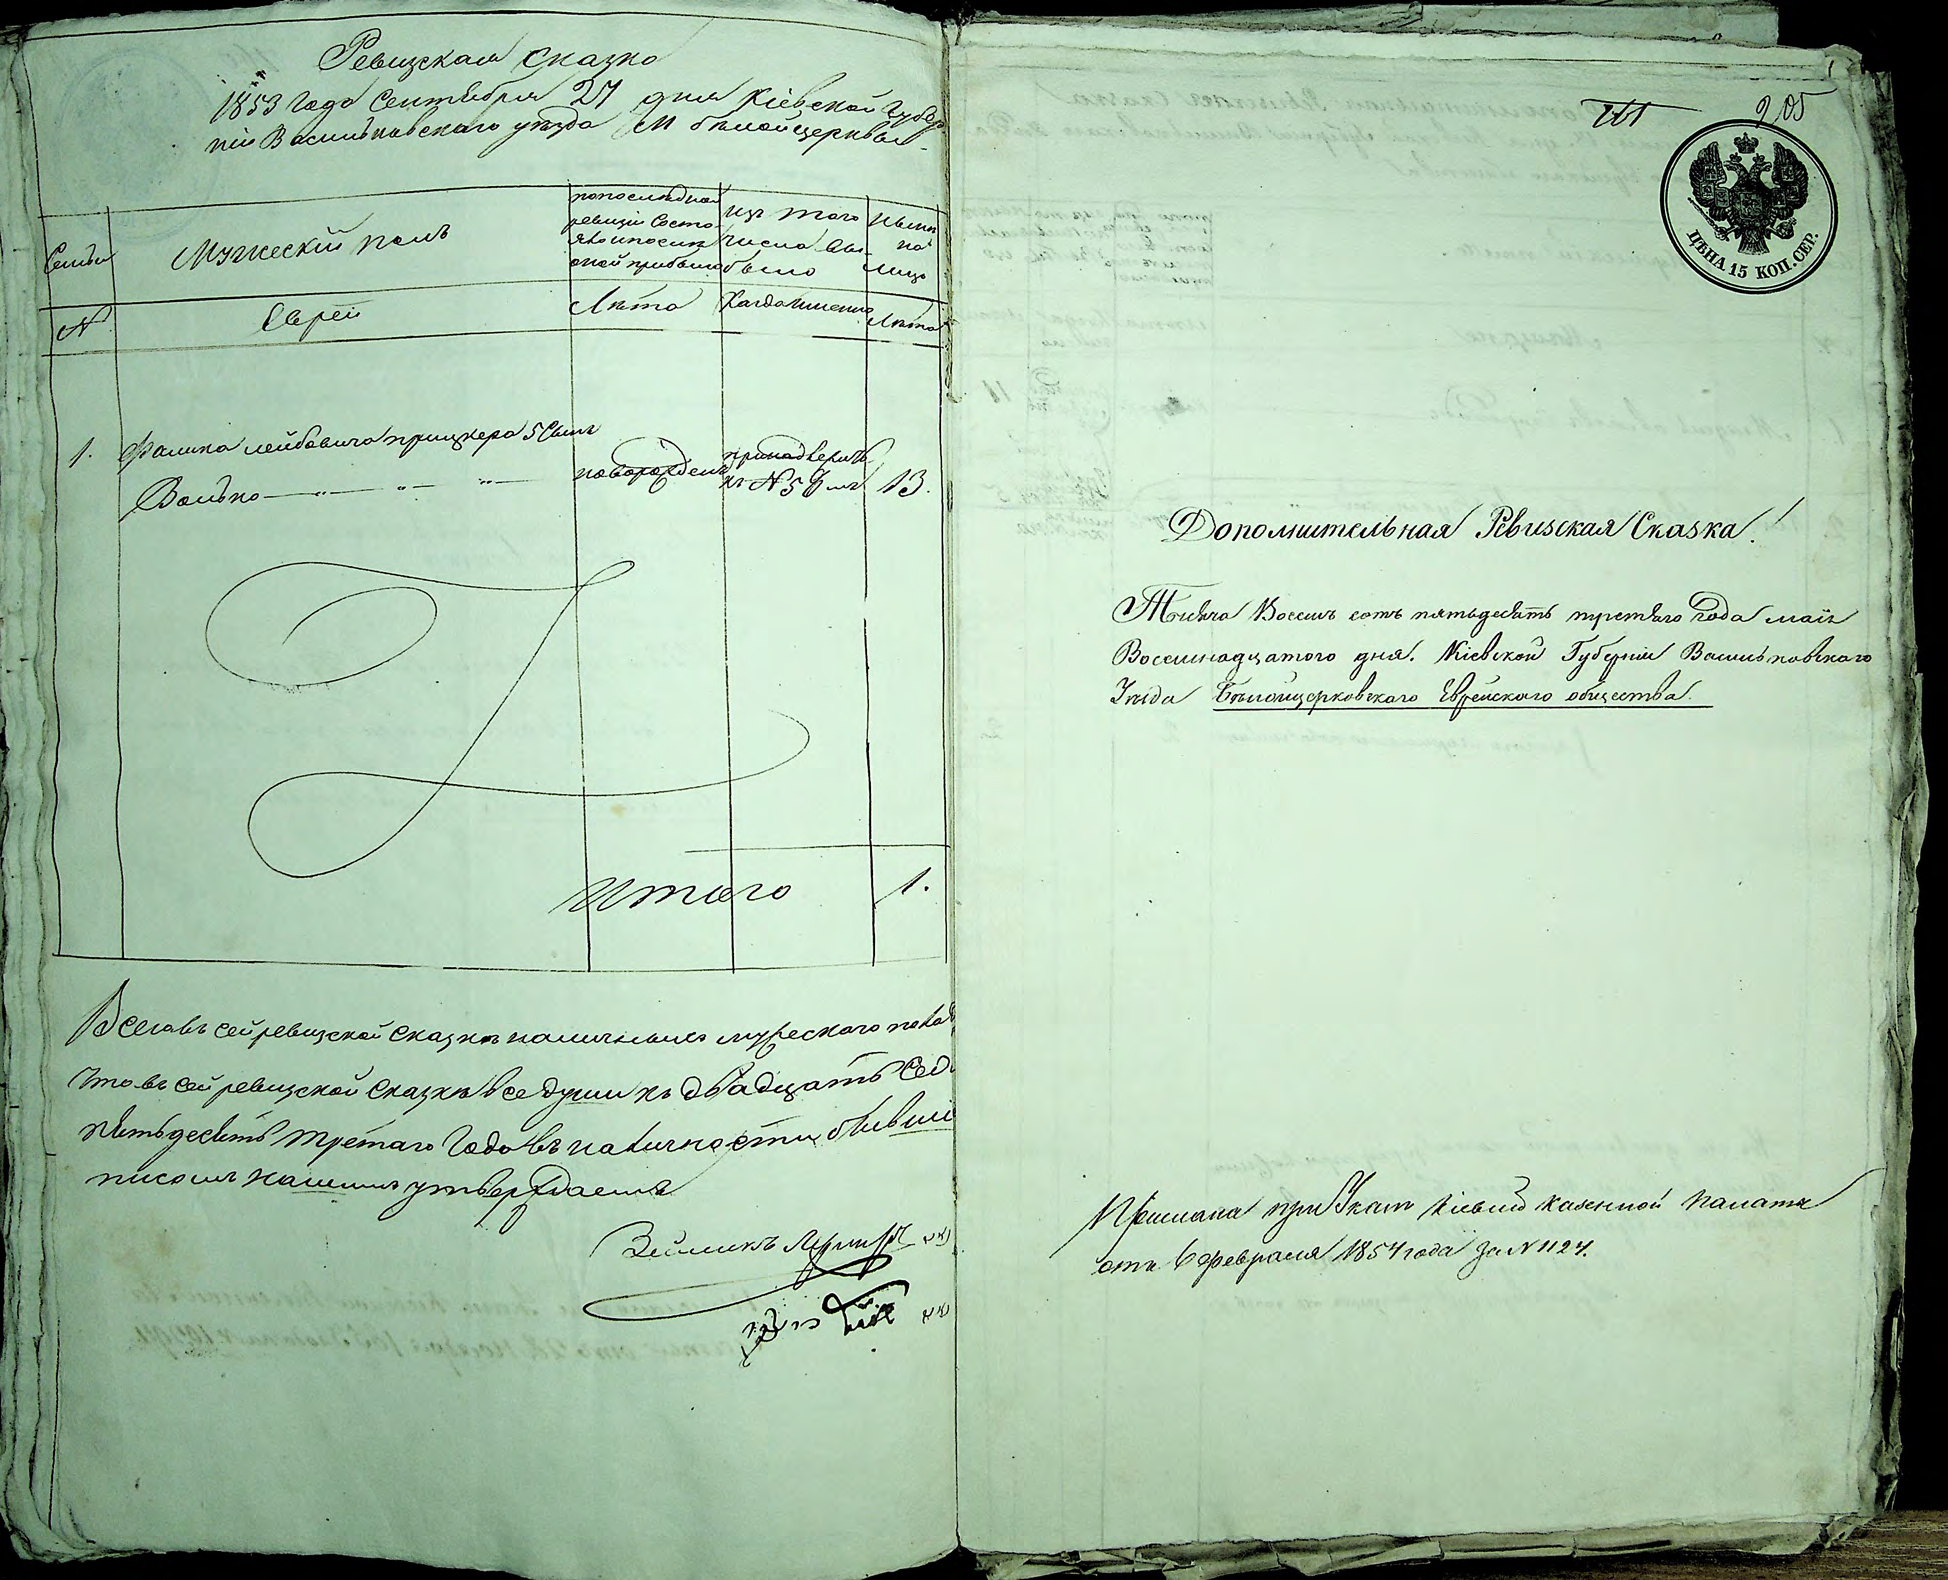 Ревизская Сказка
1853 Года Сентября 27 дня Кіевской Губер
ніи Васильковскаго уѣзда М бѣлойцерквы
Семьи
Мужескій полъ
попоследней
ревизіи Состо
яло ипосля
оной прибыло
изъ того
числа вы
было
Нынѣ
на
лицо
N
Еврей
Лѣта
Когда именно
Лѣта
1.
Фалика лейбовича прицкера 5 Сынъ
Волько
новорожденъ
принадлежитъ
къ N 57 мъ
13.
Итого
1.
Всего въ сей ревизской Сказкѣ наличныхъ мужескаго пола
Что въ сей ревизской Сказкѣ все души къ двадцать Сед
пятьдесятъ третаго Года въ наличности бывші
писомъ нашимъ утверждаемъ
205
ЦѢНА 15 КОП. СЕР.
Дополнительная Ревизская Сказка!
Тысяча Восемъ сотъ пятьдесятъ третяго Года маія
Восемнадцатого дня. Кіевской Губерніи Васильковскаго
Уѣзда Бѣлоцерковскаго Еврейскаго общества.
Прислана при Указѣ Кіевской казенной палаты
отъ 6 февраля 1854 года за N 1124.